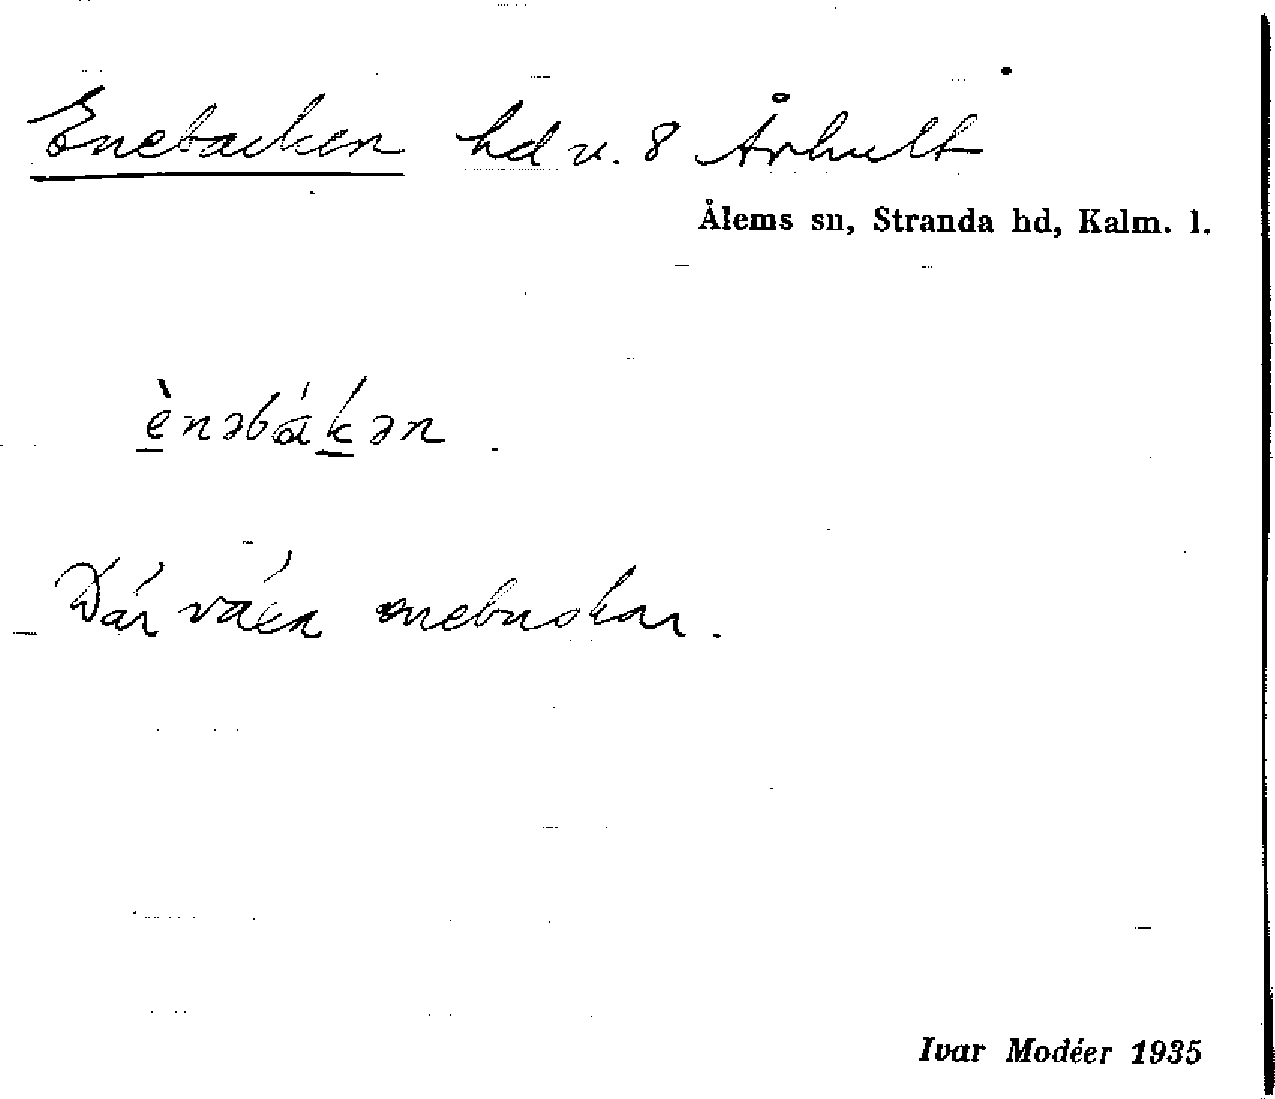 Enebacken hd v. 8 Århult
Ålems sn, Stranda hd, Kalm. l.
ènəbákən
Där växa enebuskar.
Ivar Modéer 1935